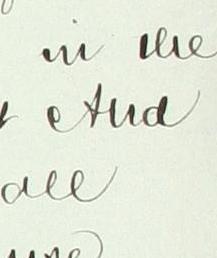 in the
And
all